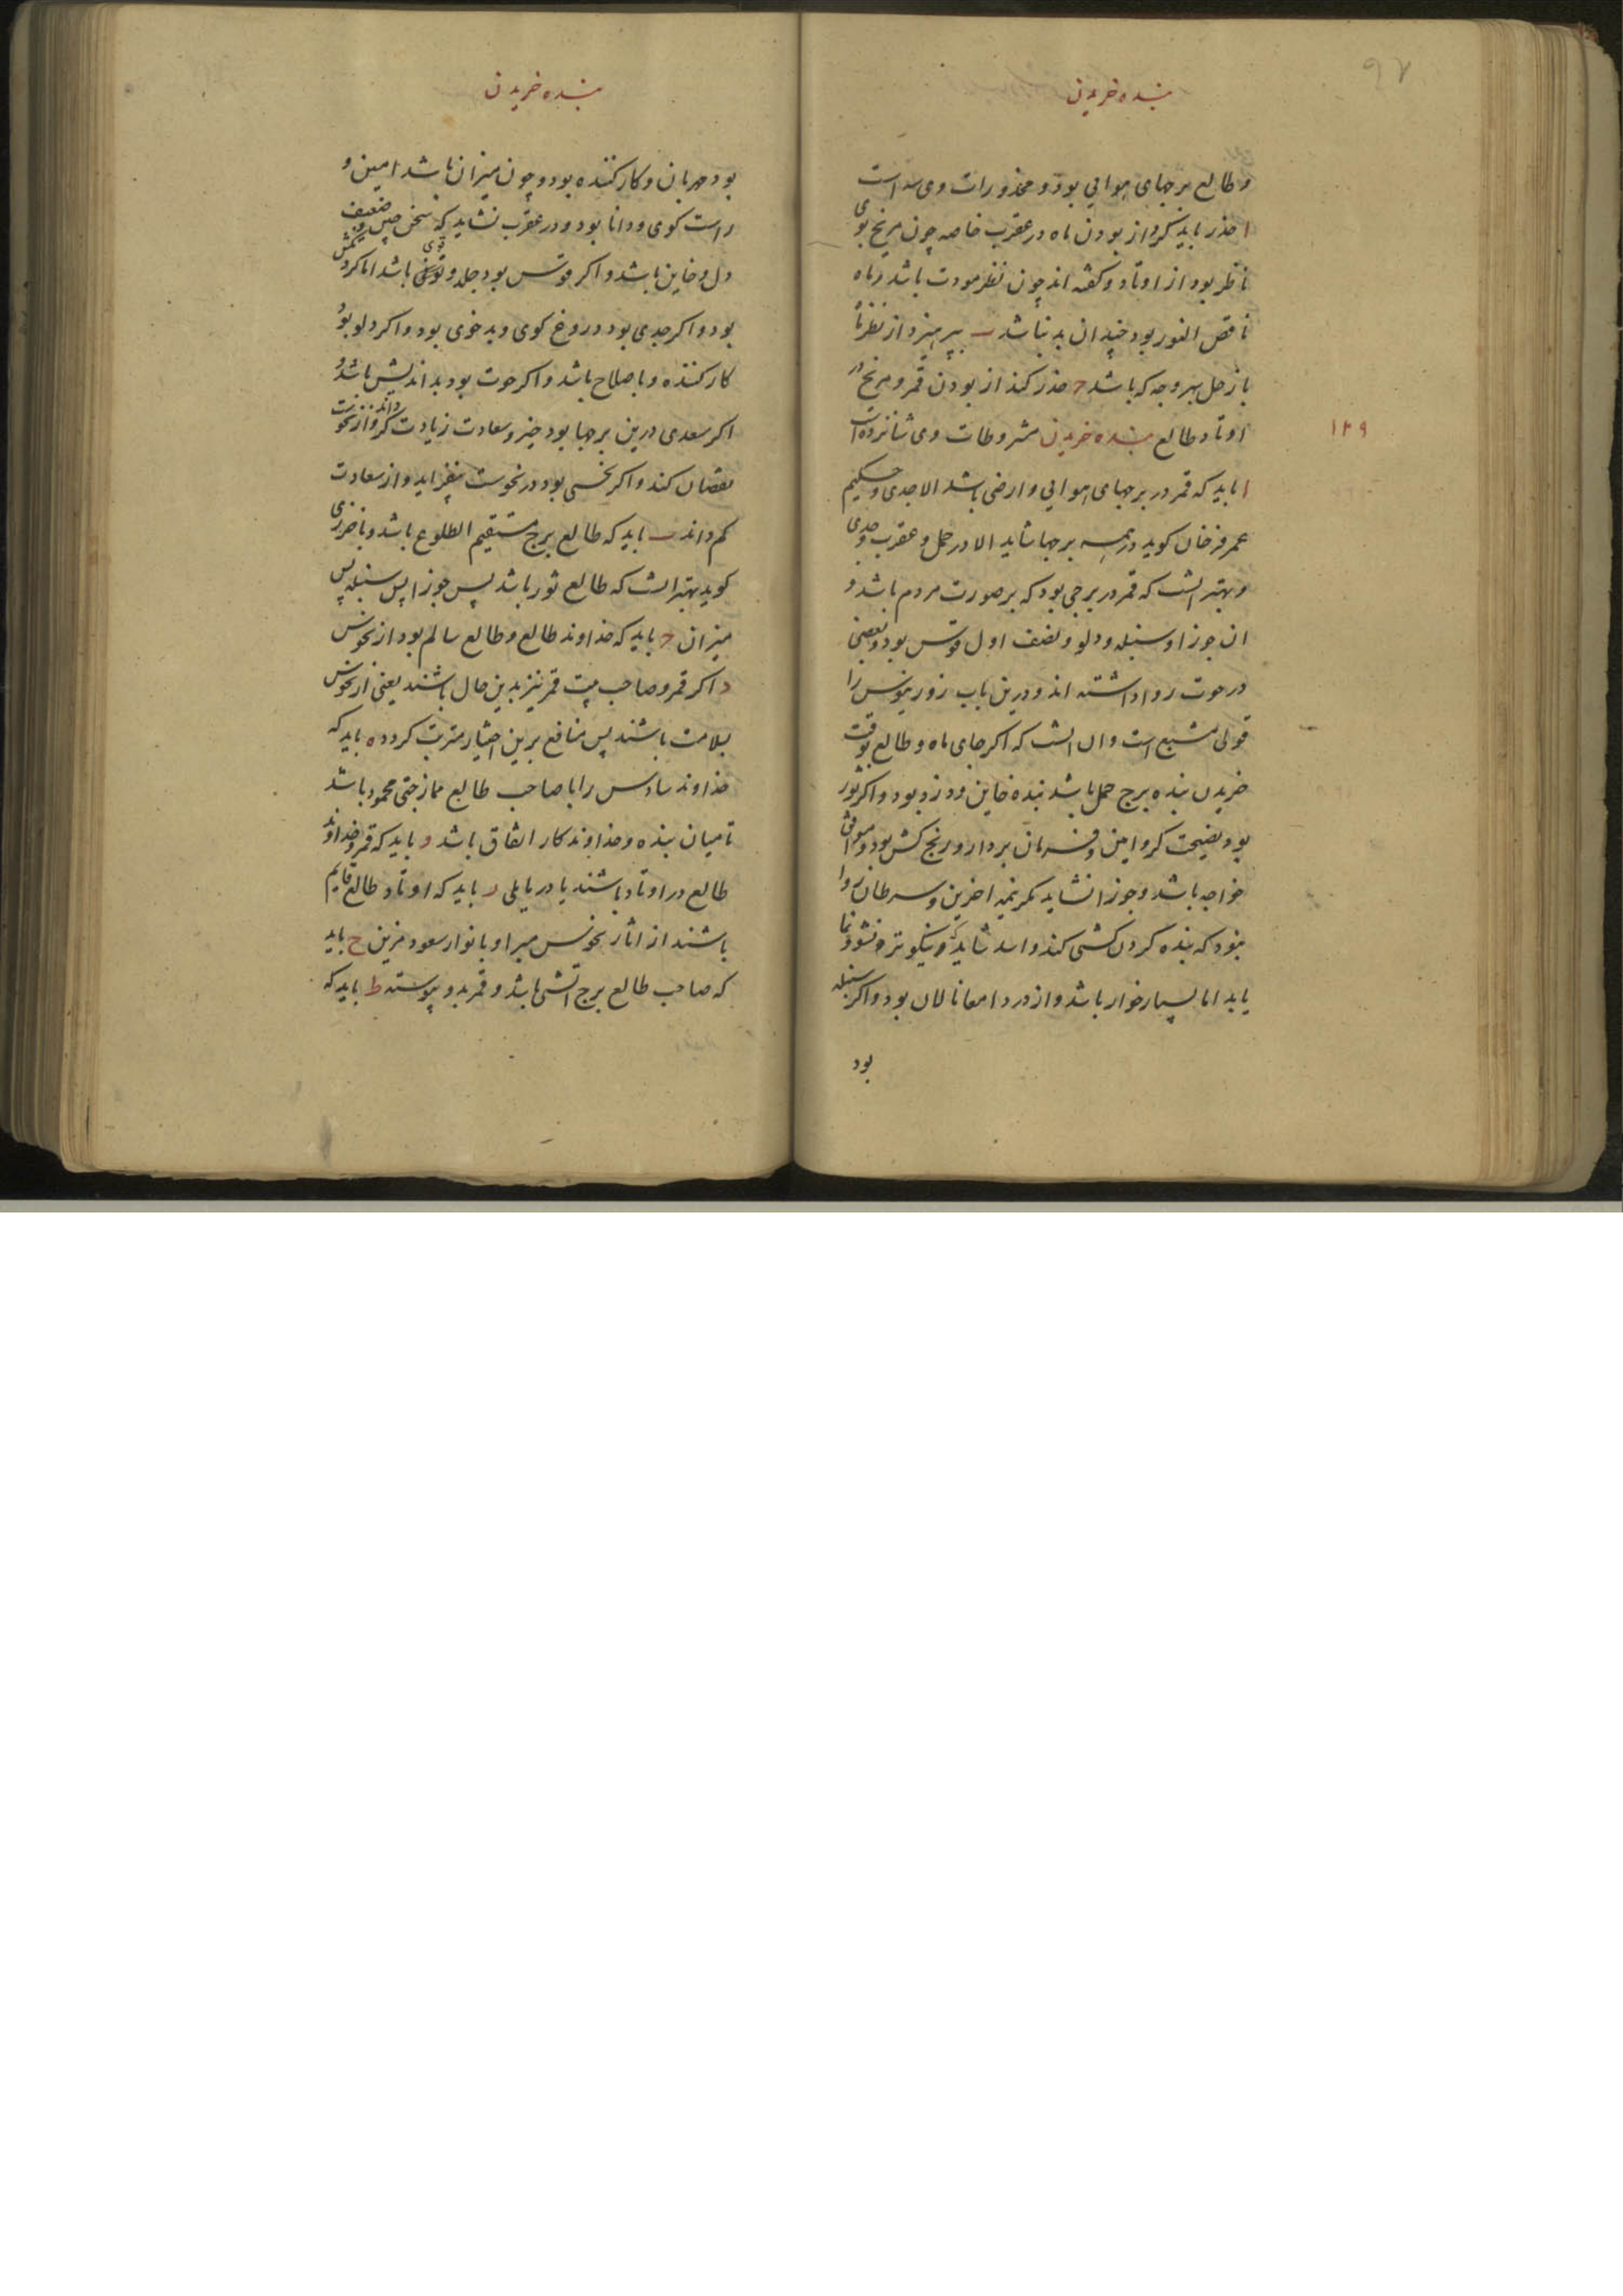 بنده خریدن
۹۷
و طالع برجهای هوایی بود و محذورات وی سه است
ا حذر باید کرد از بودن ماه در عقرب خاصه چون مریخ بوی
ناظر بود از اوتاد و گفته اند چون نظر مودت باشد و ماه
ناقص النور بود چندان بد نباشد ب بپرهیزد از نظر ماه
با زحل بهر وجه که باشد ج حذر کند از بودن قمر و مریخ در
اوتاد طالع بنده خریدن مشروطات وی شانزده است
۱۲۹
ا باید که قمر در برجهای هوایی و ارضی باشد الا جدی و حکیم
عمر فرخان کوید در همه برجها شاید الا در حمل و عقرب و جدی
و بهتر انست که قمر در برجی بود که بر صورت مردم باشد و
ان جوزا و سنبله و دلو و نصف اول قوس بود و بعضی
در حوت روا داشته اند و درین باب زور نیوس را
قولی مشبع است و ان انست که اکر جای ماه و طالع بوقت
خریدن بنده برج حمل باشد بنده خاین و دزد بود و اکر ثور
بود نصیحت کر و امین و فرمان بردار و رنج کش بود و موافق
خواجه باشد و جوزا نشاید مکر نیمه اخرین و سرطان روا
نبود که بنده کردن کشی کند و اسد شاید و نیکوتر و نشو و نما
یابد اما بسیار خوار باشد و از درد امعا نالان بود و اکر سنبله
بود
بنده خریدن
بود مهربان و کار کننده بود و چون میزان باشد امین و
راست کوی و دانا بود و در عقرب نشاید که سخن چین و ضعیف
دل و خاین باشد و اکر قوس بود جلد و قوی باشد اما کردنکش
بود و اکر جدی بود دروغ کوی و بد خوی بود و اکر دلو بود
کار کننده و با صلاح باشد و اکر حوت بود بد اندیش باشد و
اکر سعدی درین برجها بود خیر و سعادت زیادت کرداند و از نحوست
نقصان کند و اکر نحسی بود در نحوست بیفزاید و از سعادت
کم داند ب باید که طالع برج مستقیم الطلوع باشد و باخرزی
کوید بهتر انست که طالع ثور باشد پس جوزا پس سنبله پس
میزان ج باید که خداوند طالع و طالع سالم بود از نحوس
د اکر قمر و صاحب بیت قمر نیز بدین حال باشند یعنی از نحوس
بسلامت باشند پس منافع برین اختیار مترتب کردد ه باید که
خداوند سادس را با صاحب طالع ممازجتی محمود باشد
تا میان بنده و خداوندکار اتفاق باشد و باید که قمر و خداوند
طالع در اوتاد باشند یا در مایلی ز باید که اوتاد طالع قایم
باشند از اثار نحوس مبرا و بانوار سعود مزین ح باید
که صاحب طالع برج اتشی باشد و قمر بدو پیوسته ط باید که